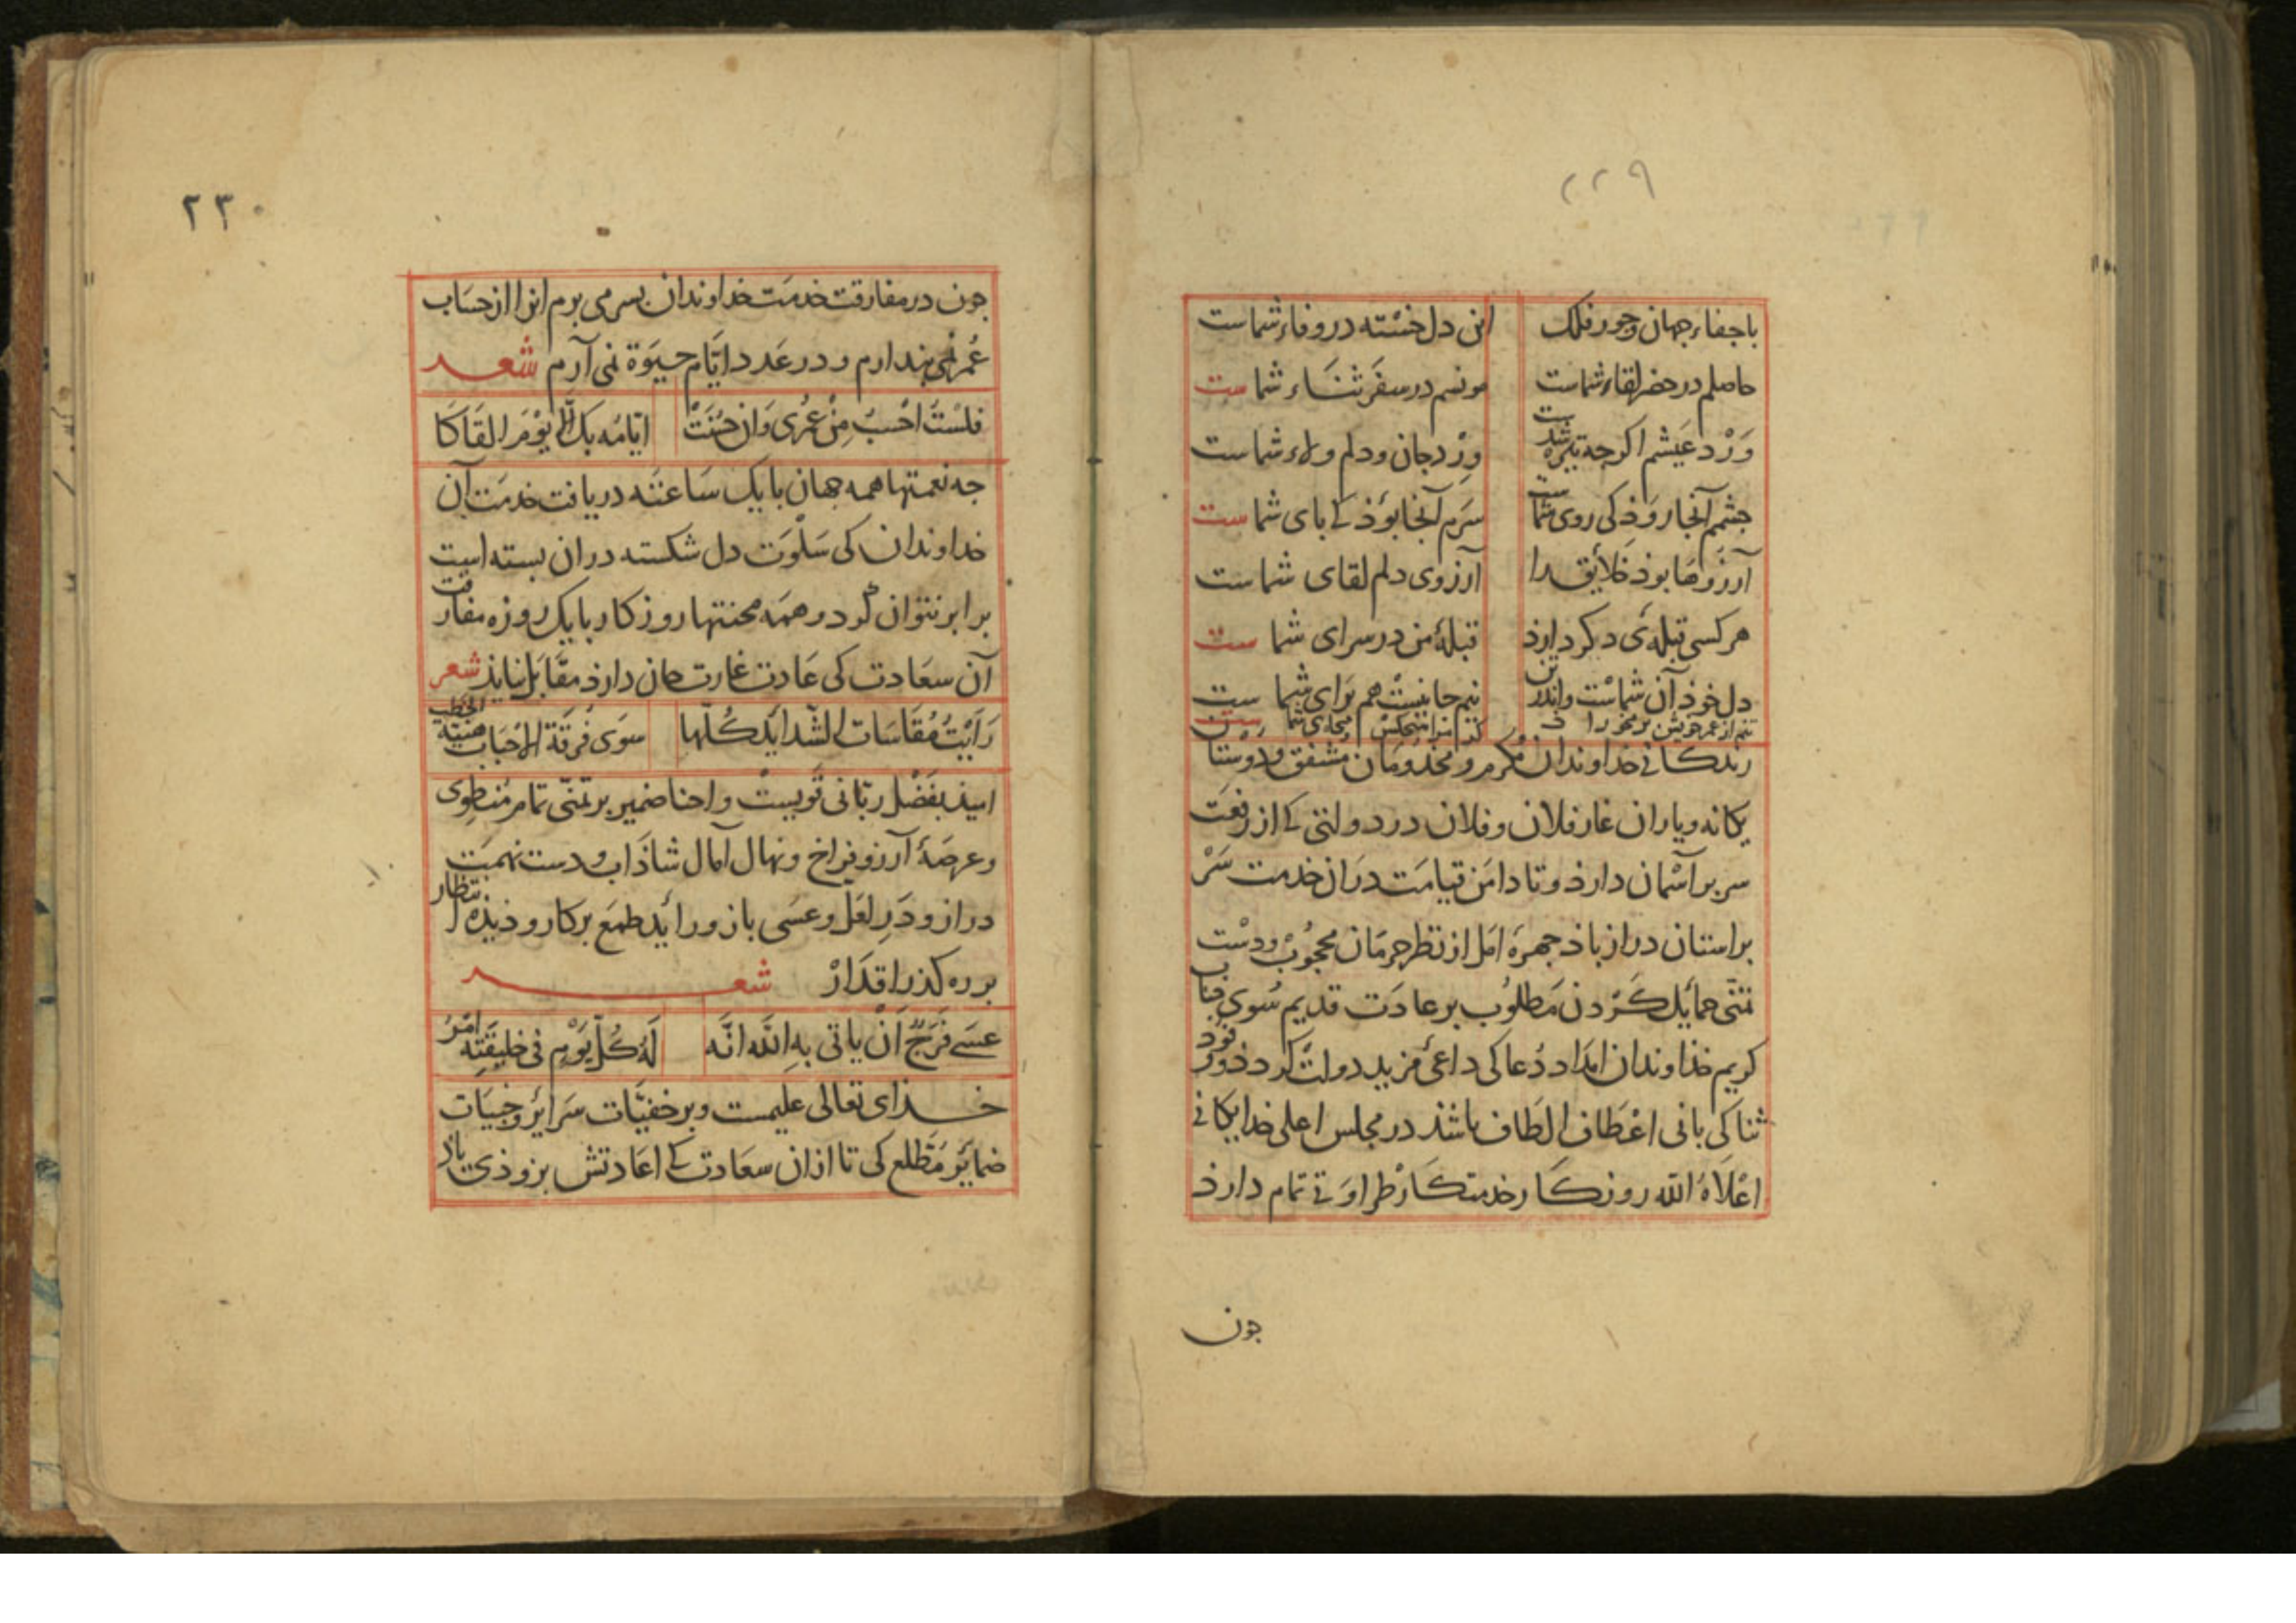 ۲۲۹
با جفاء جهان وجور فلک این دل خسته در وفاء شماست
حاصلم در حضر لقاء شماست مونسم در سفر ثناء شماست
وَرْد عَیشم اکرجه تیره شدست وِرْد جان ودلم ولاء شماست
جشم آنجا روَذ کی روی شماست سرم آنجا بوَذ کی بای شماست
آرزوها بوذ خلایق را آرزوی دلم لقای شماست
هر کسی قبلهٔ دکر دارذ قبلهٔ من در سرای شماست
دل خوذ آن شماست واندر تن نیم جانیست هم برای شماست
زندکانی خداوندان مُکرم ومخدومان مشفق ودوستان
یکانه ویاران غار فلان وفلان در دولتی کی از رفعت
سر بر آسمان دارذ وتا دامن قیامت دران خدمت سَرْ
بر استان دراز باذ جهرهٔ امل از نظر حرمان محجُوبْ ودسْت
تمنّی حمایل کَرْدن مَطلوُب بر عادَت قدیم سُوی جناب
کریم خذاوندان امداد دُعا کی داعی مزید دولت کردذ ووُرود
ثنا کی بانی اعْطاف الطاف باشذ در مجلس اعلی خدایکانی
اعْلَاهُ الله روزکار خدمتکار طراوتی تمام دارذ
جون
۲۳۰
جون در مفارقت خدمت خداوندان بسر می برم انرا از حسَاب
عُمر نمی بندارم ودر عَدد ایّام حیوة نمی آرم شعر
فلسْتُ احْسبُ مِنْ عُمْری وَان حَسُنَتْ ایّامُه بک اِلّا یوْمَ القَاکَا
جه نعمتها همه جهان با یک سَاعته دریافت خدمت آن
خداوندان کی سَلْوَت دل شکسته دران بسته است
برابر نتوان کرد وهمَه محنتها روزکار با یک روزه مفارقت
آن سعَادت کی عَادت غارت جان دارذ مقابَل نیایذ شعر
رَأَیْتُ مُقَاسَات الشّدایَد کُلّها سوَی فُرقَة الاحْبَاب هینة الخطب
امیذ بفَضْل ربّانی قویسْت واحنا ضمیر بر تمنّی تمام مُنطوِی
وعرصَهٔ آرزو فراخ ونهال آمال شاذاب ودست نهمَت
دراز ودَرِ لعَلّ وعسَی باز ورائد طمَع بر کار ودیذه انتظار
بر ره کذر اقدَارْ شعر
عسَے فَرَجٌ اَنْ یاتی بهِ اللّه انَّه لَهُ کُلَّ یَوْمٍ فی خلیقَتِه امْرُ
خذای تعالی علیمست وبر خفیّات سَرایر وخبیَات
ضمایَر مُطّلع کی تا ازان سعَادت کی اعَادتش بزوذی باذ